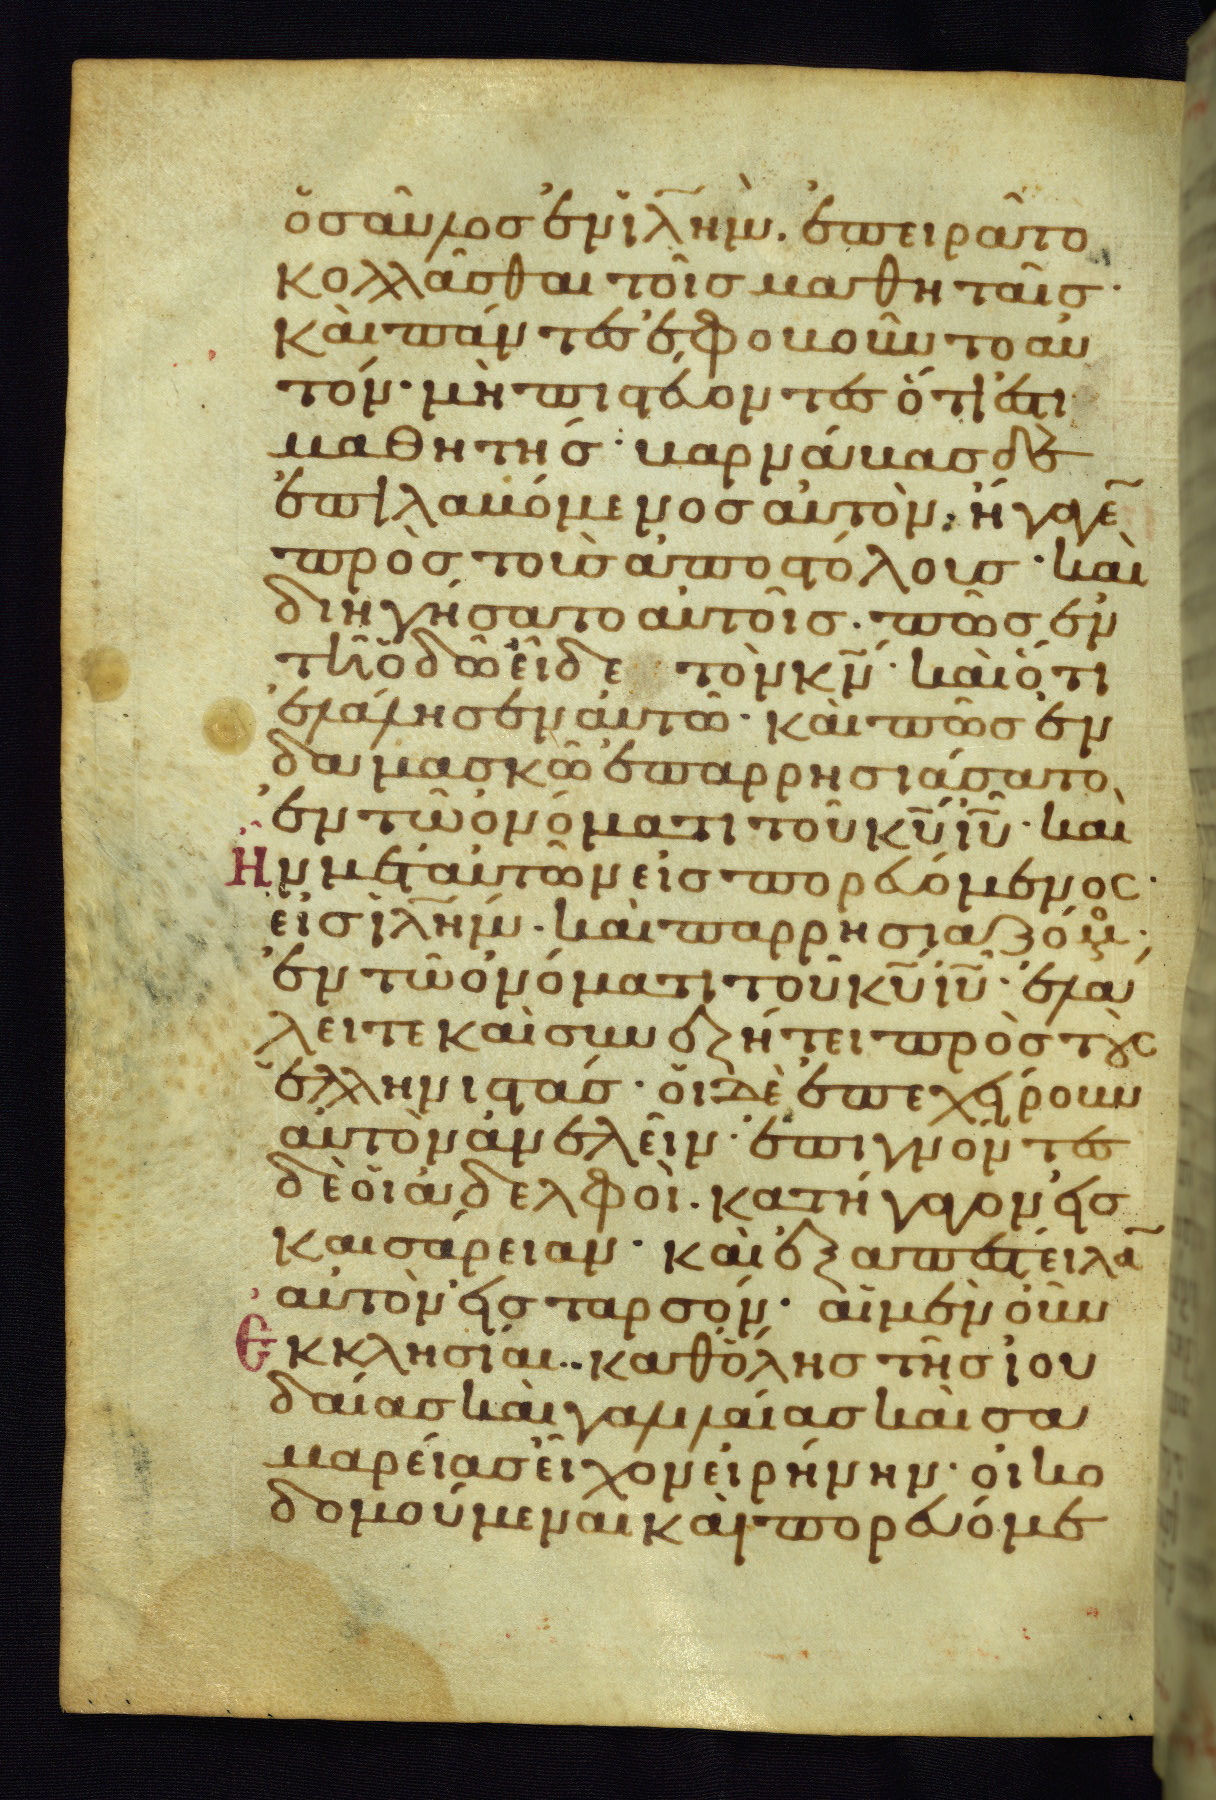 ὁ σαῦλος ἐν ἰλημ̀. ἐπειρᾶτο
κολλᾶσθαι τοῖς μαθηταῖς·
καὶ πάντες ἐφοκοῦντο αυ
τόν· μὴ πιστεύοντες ὅτι ἐστι
μαθητής· καρνάκας δὲ
ἐπιλακόμενος αὐτὸν, ἤγαγε̃
πρὸς τοὺς ἀποστόλους· καὶ
διηγήσατο αὐτοῖς· πῶς ἐν
τῆ ὁδῶ εἶδε τὸν κν̄· καὶ ὅτι
ἐλάλησεν αὐτῶ· καὶ πῶς ἐν
δαμασκῶ ἐπαρρησιάσατο
ἐν τῶ ὀνόματι τοῦ κῡ ἰῡ· καὶ
Ἦν μετ' αὐτῶν εἰσπορευόμενος·
εἰς ἰλημ́· καὶ παρρησιαζόμ̊·
ἐν τῶ ὀνόματι τοῦ κῡ ἰῡ· ἐλά
λει τε καὶ συνεζήτει πρὸς τοὺς
ἑλληνιστάς· οἱ δὲ ἐπεχείρουν
αὐτὸν ἀνελεῖν· ἐπιγνόντες
δὲ οἱ ἀδελφοὶ. κατήγαγον εἰς
καισάρειαν· καὶ ἐξαπέστειλα̃
αὐτὸν εἰς ταρσόν· αἱ μὲν οὖν
Ἐκκλησίαι.. καθόλης τῆς ἰου
δαίας καὶ γαλλαίας καὶ σα
μαρείας εἶχον εἰρήνην· οἰκο
δομούμεναι καὶ πορευόμε